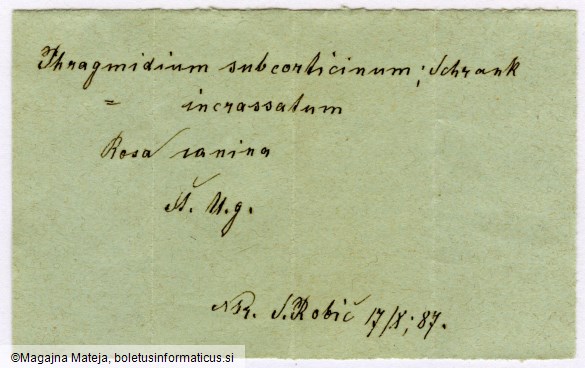 Phragmidium subcorticinum; Schrank
= incrassatum
Rosa canina
Št. U.g.
Nbr. S. Robič 17/X; 87.
©Magajna Mateja, boletusinformaticus.si